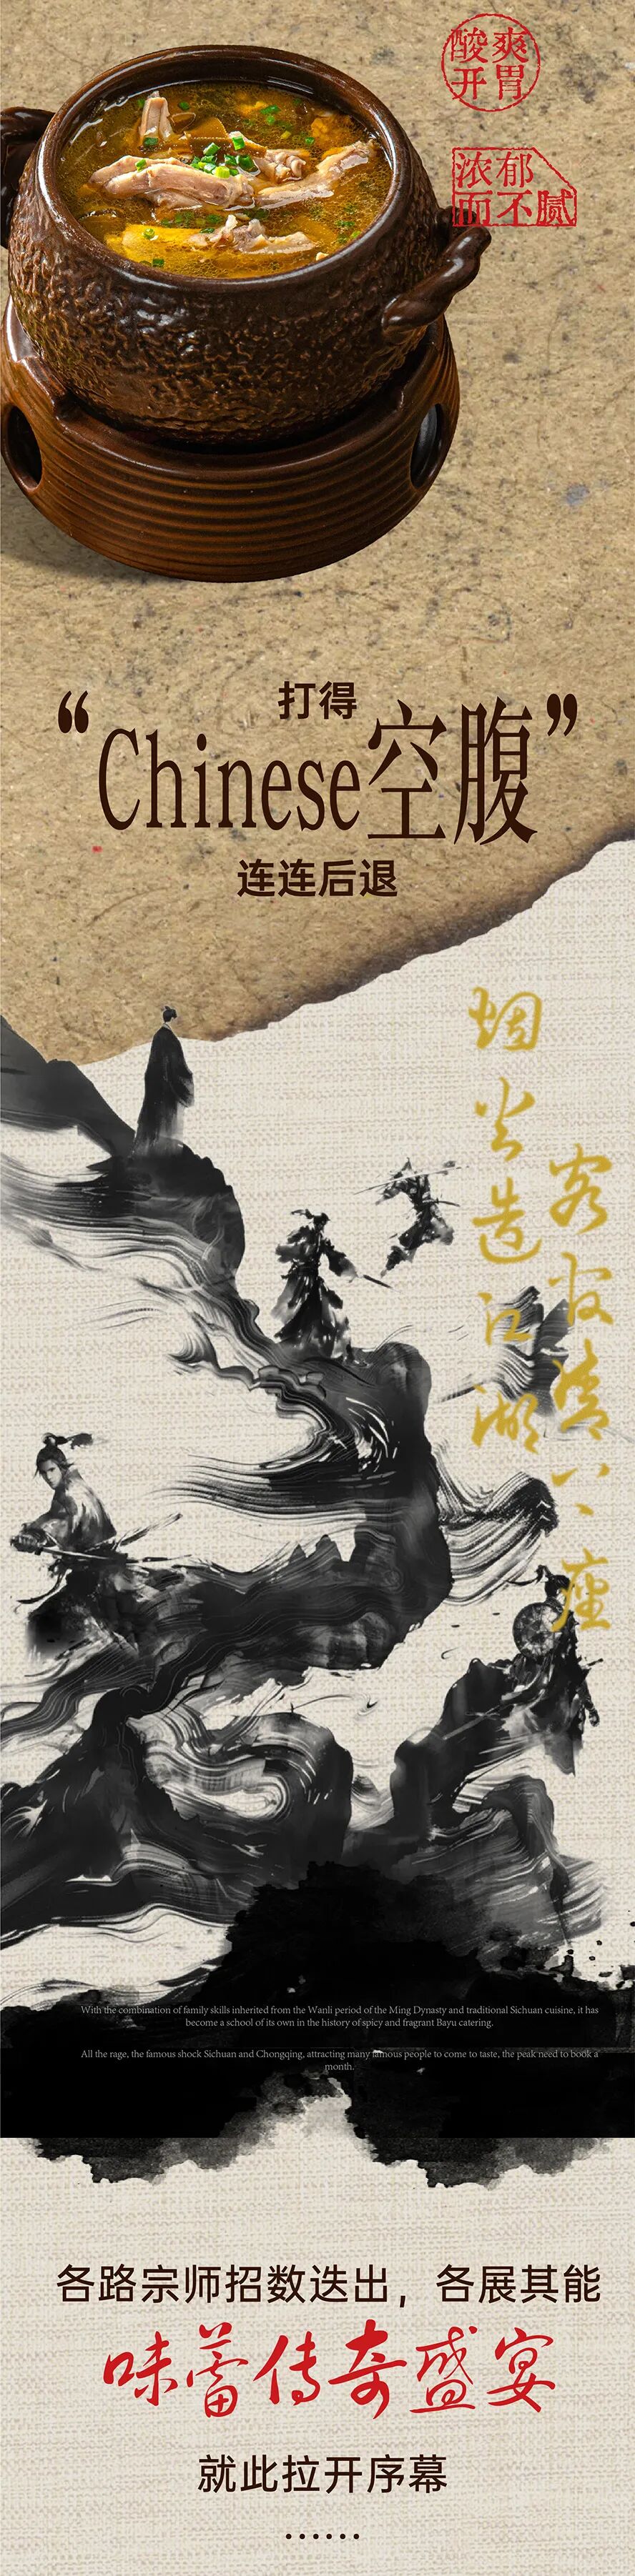 酸爽
开胃
浓郁
而不腻
打得
“Chinese空腹”
连连后退
烟火造江湖
客官请入座
With the combination of family skills inherited from the Wanli period of the Ming Dynasty and traditional Sichuan cuisine, it has
become a school of its own in the history of spicy and fragrant Bayu catering.
All the rage, the famous shock Sichuan and Chongqing, attracting many famous people to come to taste, the peak need to book a
month.
各路宗师招数迭出，各展其能
味蕾传奇盛宴
就此拉开序幕
······